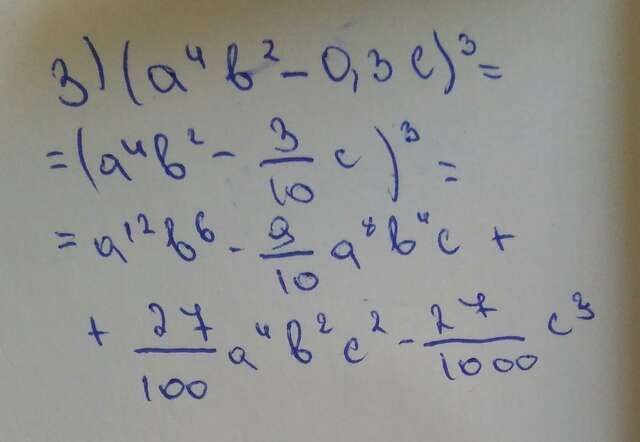 3) (a⁴b² - 0,3c)³ =
= (a⁴b² - 3/10 c)³ =
= a¹²b⁶ - 9/10 a⁸b⁴c +
+ 27/100 a⁴b²c² - 27/1000 c³